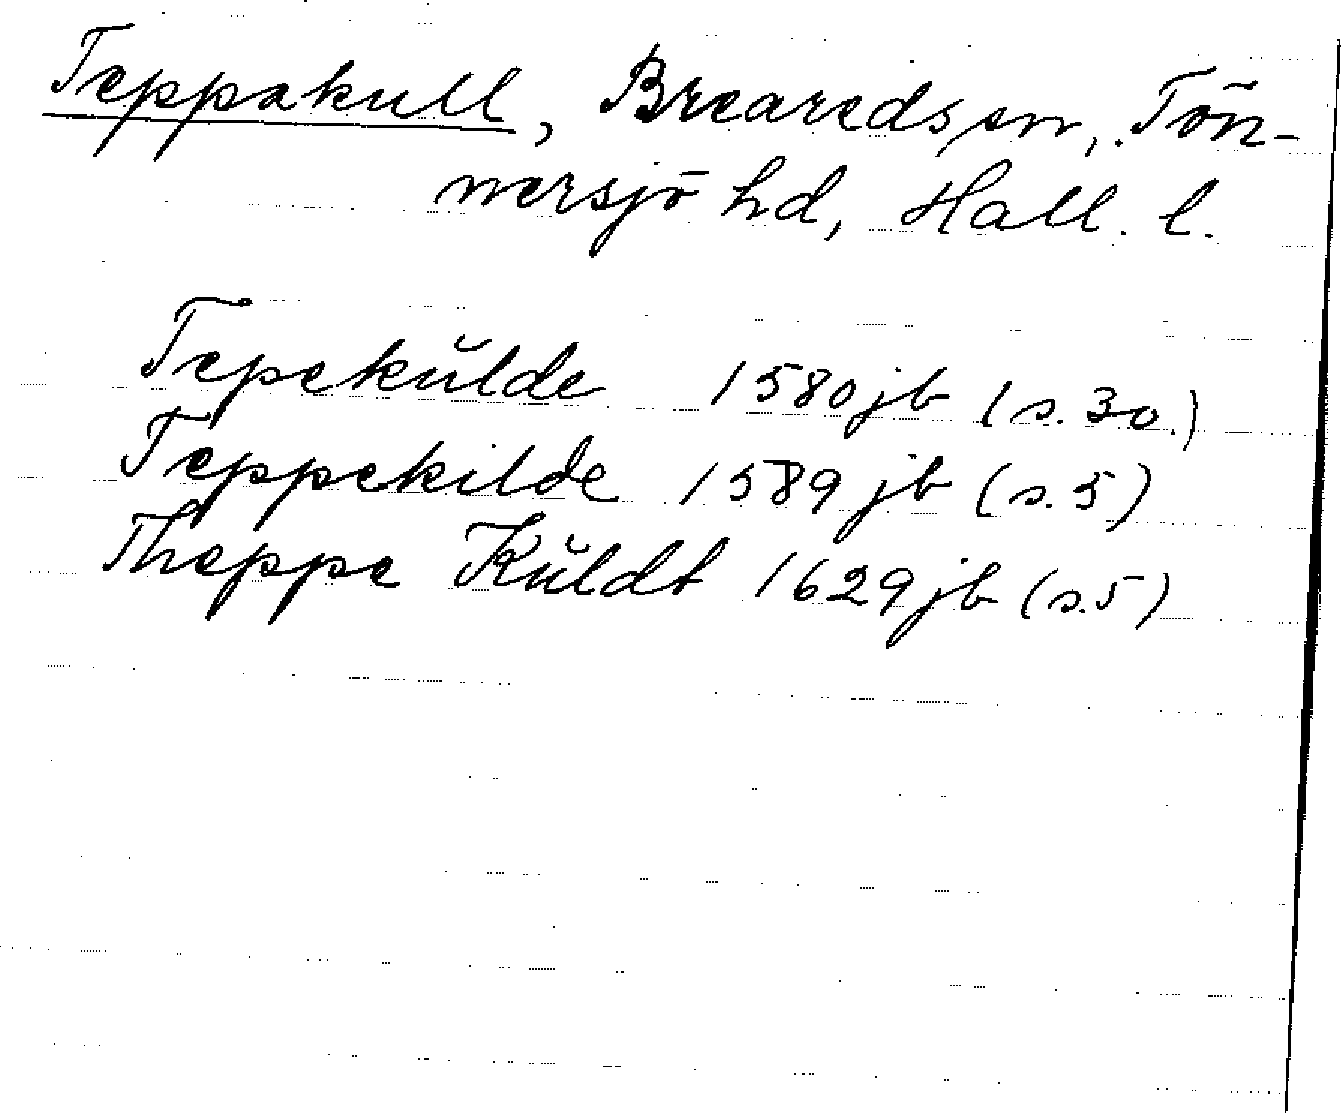 Teppakull, Breareds sn, Tön-
nersjö hd, Hall. l.
Tepekŭlde 1580 jb (s. 30.)
Teppekilde 1589 jb (s. 5)
Theppe Kŭldt 1629 jb (s. 5)